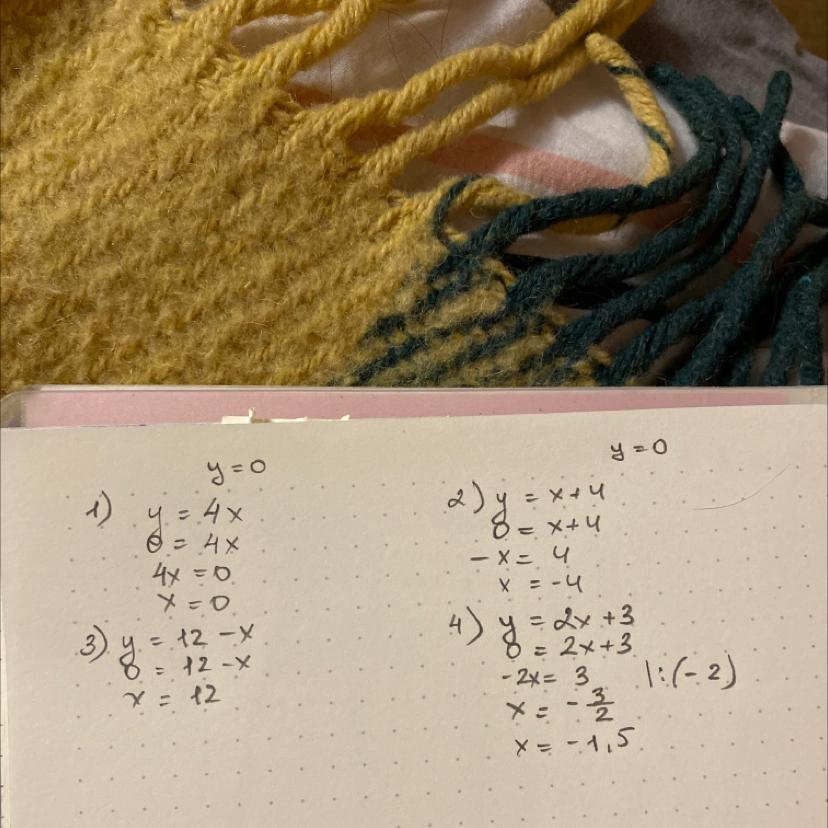 y = 0
1) y = 4x
0 = 4x
4x = 0
x = 0
3) y = 12 - x
0 = 12 - x
x = 12
y = 0
2) y = x + 4
0 = x + 4
- x = 4
x = - 4
4) y = 2x + 3
0 = 2x + 3
- 2x = 3 |:(- 2)
x = - 3/2
x = - 1,5